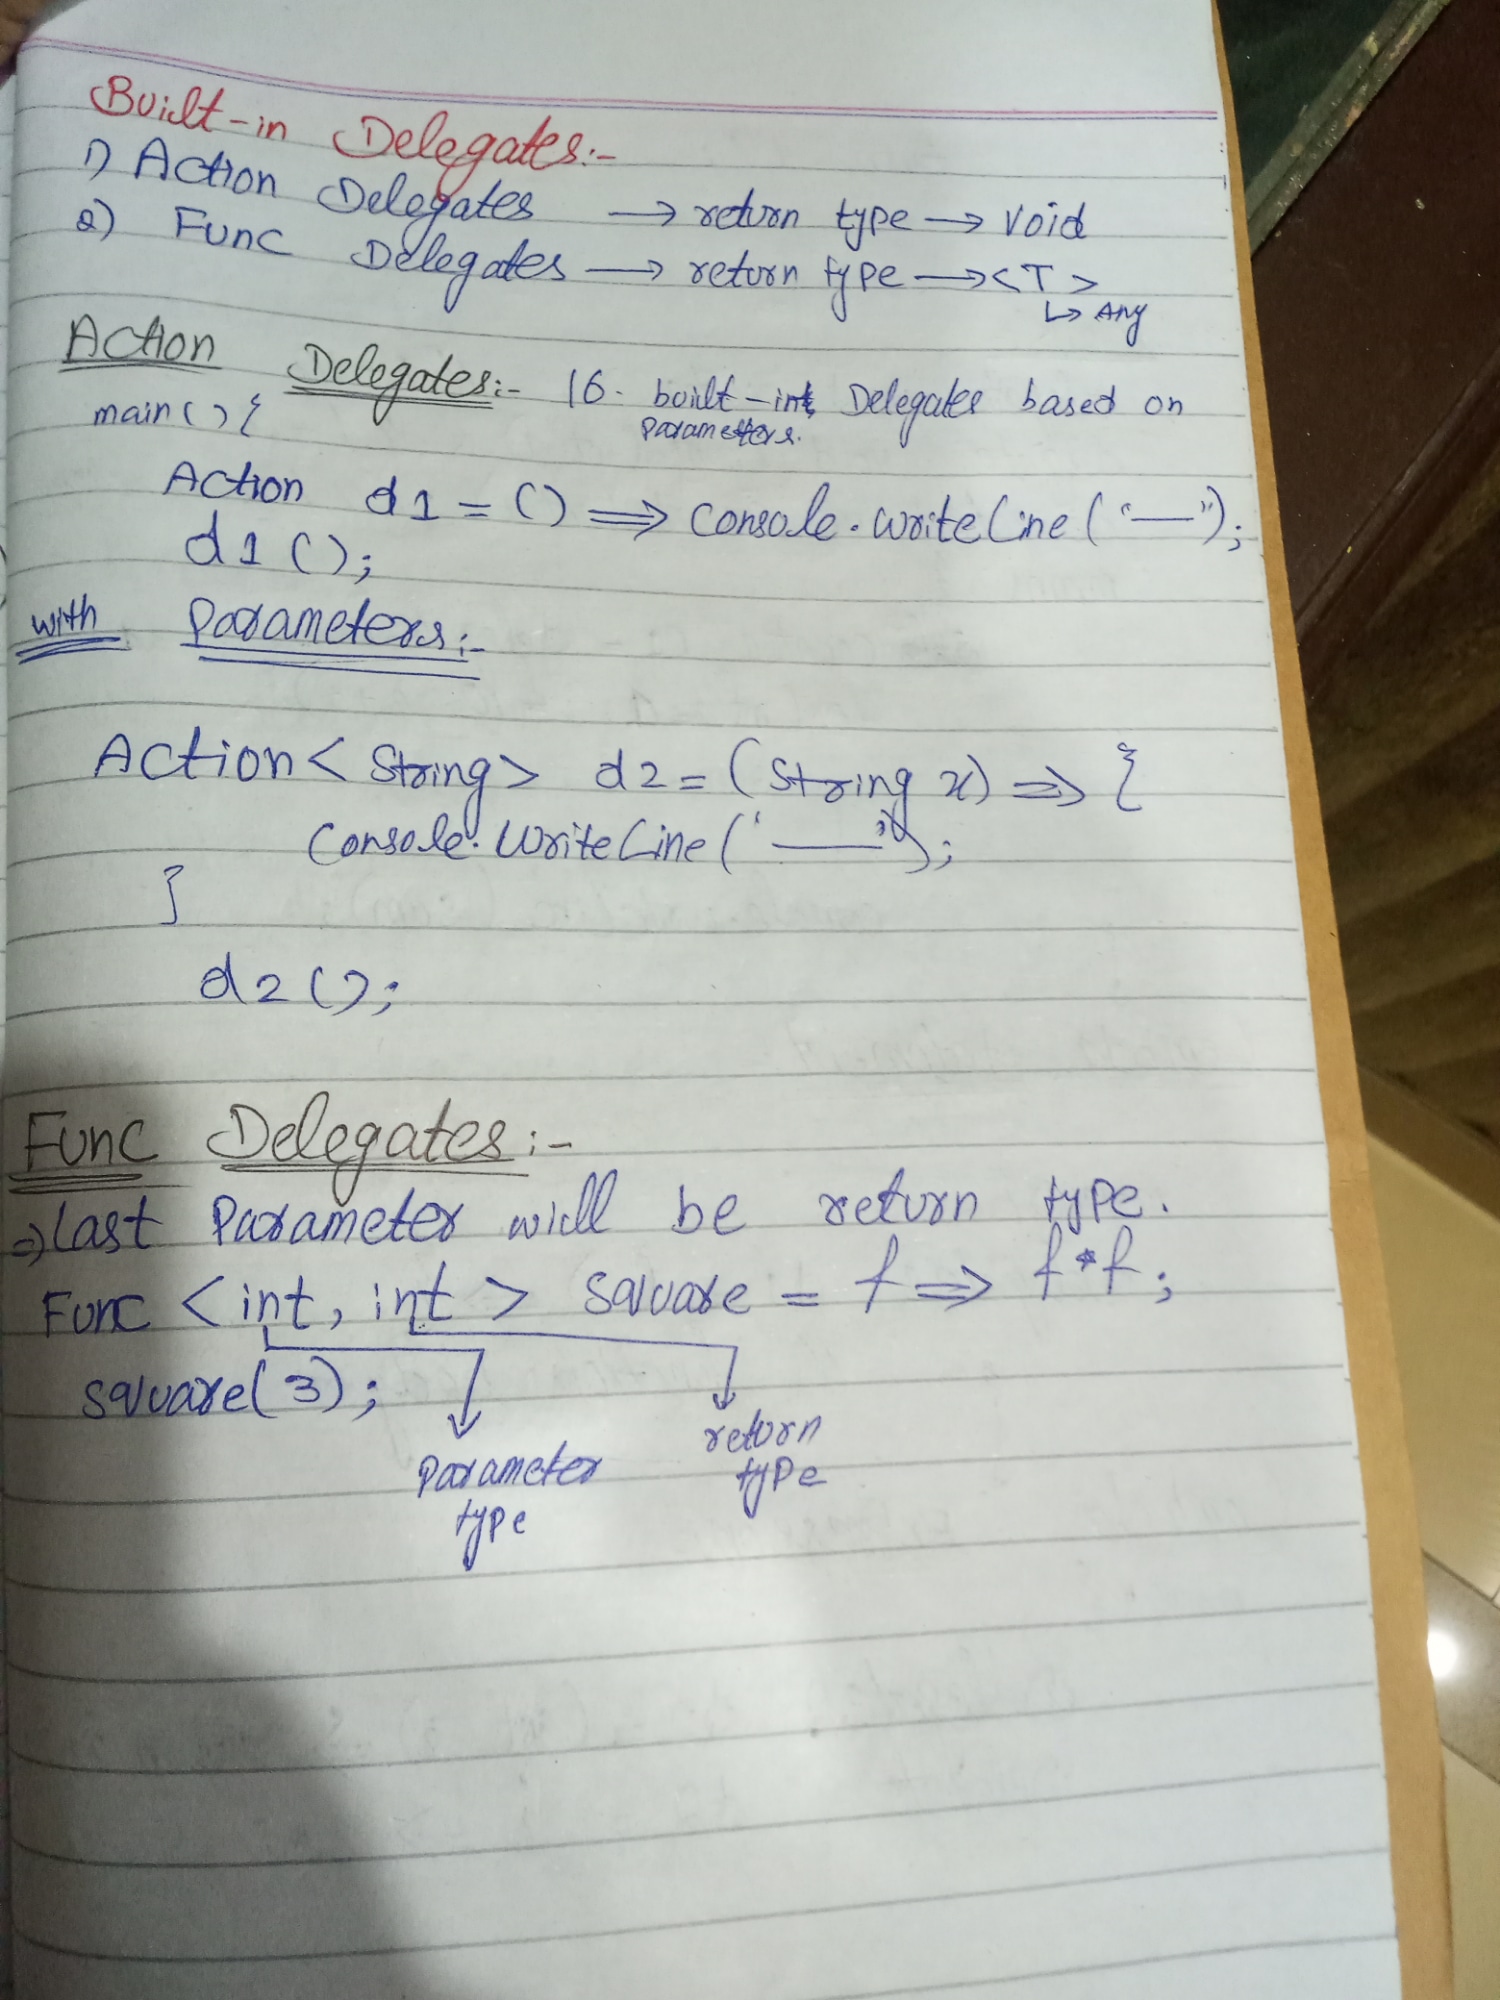 Built-in Delegates:-
1) Action Delegates → return type → void
2) Func Delegates → return type → <T>
↳ Any
Action Delegates:- 16 built-int Delegates based on
parametters.
main() {
Action d1 = () => Console.WriteLine("—");
d1();
with Parameters:-
Action<String> d2 = (String x) => {
Console.WriteLine('—');
}
d2();
Func Delegates:-
⇒ Last Parameter will be return type.
Func <int, int> square = f => f*f;
square(3);
return
type
Parameter
type